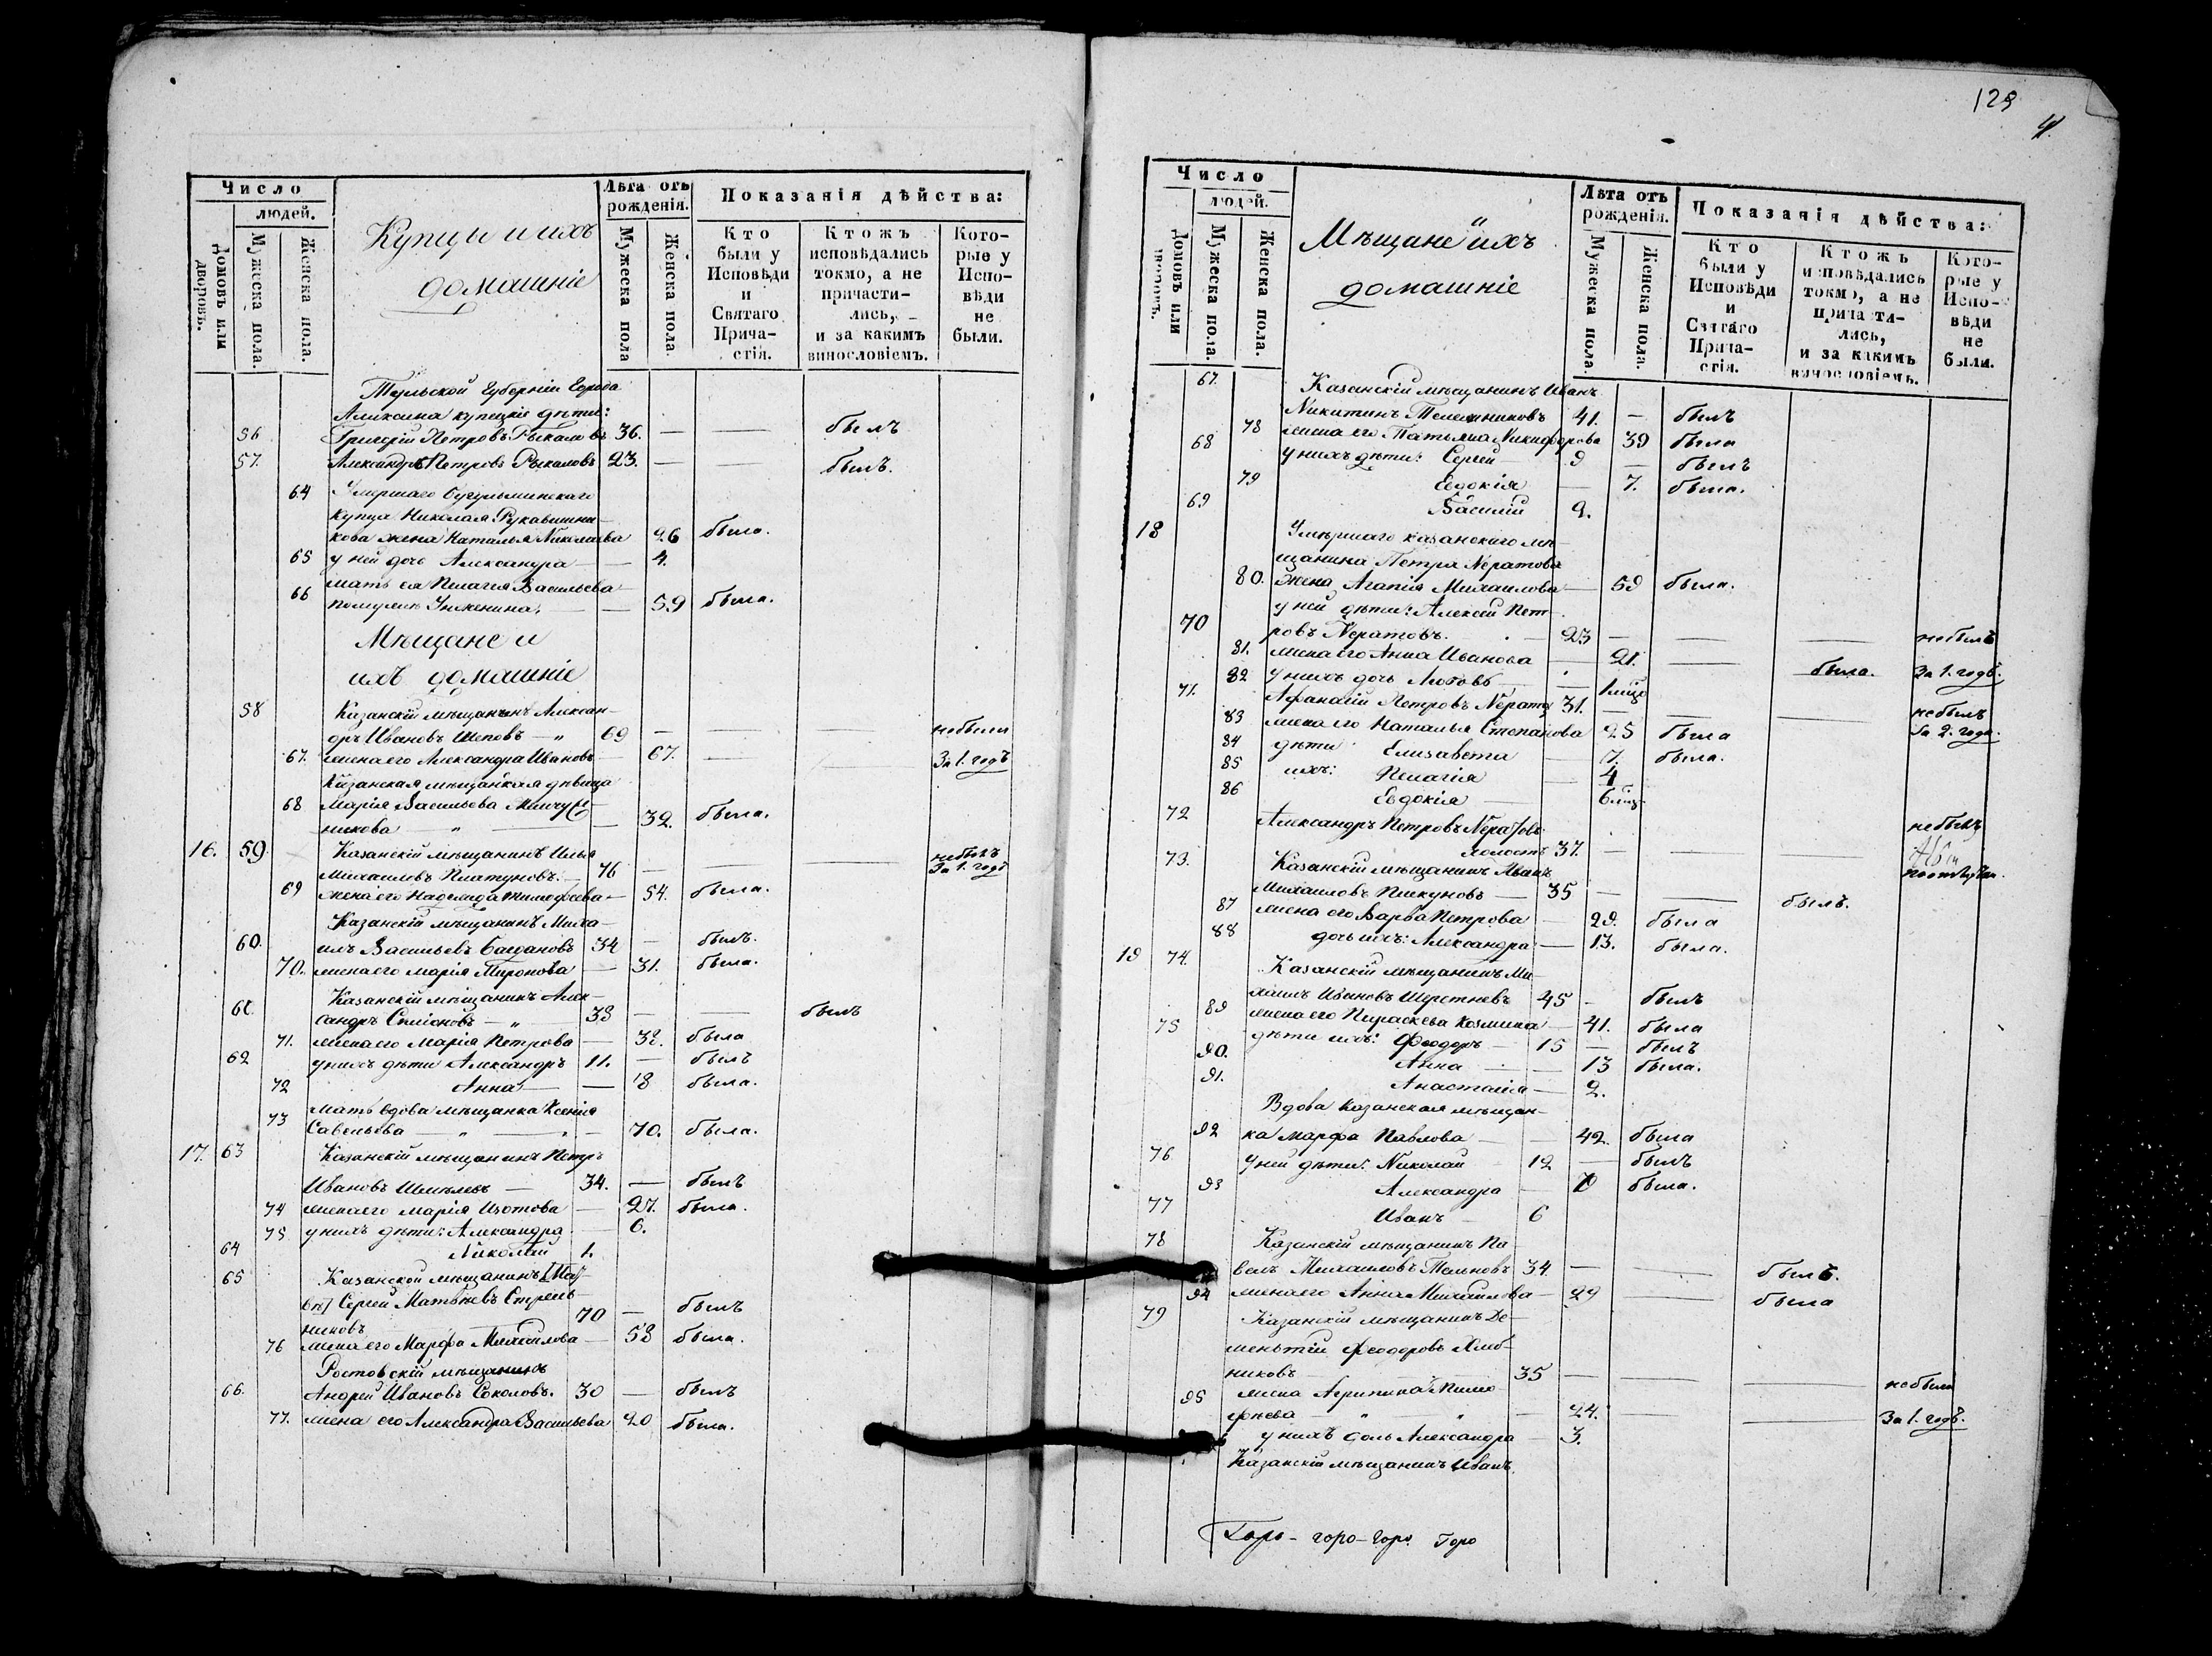 Число
людей.
Домовъ или дворовъ.
Мужеска пола.
Женска пола.
Купцы и ихъ
домашніе
Лѣта отъ
рожденія.
Мужеска пола
Женска пола.
Показанія дѣйства:
Кто
были у
Исповѣди
и
Святаго
Прича-
стія.
Ктожъ
исповѣдались
токмо, а не
причасти-
лись,
и за какимъ
винословіемъ.
Кото-
рые у
Испо-
вѣди
не
были.
Тульской Губерніи Города
Алексина купецкіе дѣти:
56 Григорій Петровъ Рыкаловъ 36. — — былъ
57. Александръ Петровъ Рыкаловъ 23. — — былъ.
64 Умершаго Бугульминскаго
купца Николая Рукавишни-
кова жена Наталья Николаева 26 была.
65 у ней дочь Александра — 4.
66 мать ея Пелагея Васильева
— 59 была.
Мѣщане и
ихъ домашніе
58 Казанскій мѣщанинъ Алексан-
дръ Ивановъ — " 69 — — — небыли
67. жена его Александра Иванова — 67. — — За 1. годъ
Казанская мѣщанская дѣвица
68 Марія Васильева
никова — " — 32. была.
16. 59. Казанскій мѣщанинъ Илья
Михаиловъ Платуновъ. — 76 — — — небылъ
За 1. годъ
69 жена его Надежда Тимофеева — 54. была.
Казанскій мѣщанинъ Миха-
60. илъ Васильевъ Богдановъ 34 — былъ.
70. жена его Марія Миронова — 31. была.
Казанскій мѣщанинъ Алек-
61. сандръ Семеновъ — " 38 — — былъ
71. жена его Марія Петрова — 32. была
62 у нихъ дѣти Александръ 11. — былъ
72 Анна — — 8 была.
73 мать вдова мѣщанка Ксенія
Савельева — " — " — 70. была.
17. 63 Казанскій мѣщанинъ Петръ
Ивановъ — 34. — былъ
74 жена его Марія Изотова — 27. была.
75 у нихъ дѣти: Александра — 6.
64 Николай 1.
65 Казанской мѣщанинъ [Мат-
вѣ] Сергей Матвѣевъ Стрель-
никовъ 70 — былъ
76 жена его Марфа Михаилова — 58 была.
Ростовскій мѣщанинъ
66. Андрей Ивановъ Соколовъ. 30 — былъ
77. жена его Александра Васильева 20 была.
129
4.
Число
людей.
Домовъ или дворовъ.
Мужеска пола.
Женска пола.
Мѣщане и ихъ
домашніе
Лѣта отъ
рожденія.
Мужеска пола.
Женска пола.
Показанія дѣйства:
Кто
были у
Исповѣди
и
Святаго
Прича-
стія.
Ктожъ
исповѣдались
токмо, а не
причасти-
лись,
и за какимъ
винословіемъ.
Кото-
рые у
Испо-
вѣди
не
были.
67. Казанскій мѣщанинъ Иванъ
Никитинъ 41. — былъ
78 жена его Татьяна Никифорова 39 была
68 у нихъ дѣти: Сергей — 9 — былъ
79 Евдокія — 7. была.
69 Василій 2.
18 Умершаго казанскаго мѣ-
щанина Петра Нератова
80. жена Агапія Михаилова — 59 была.
у ней дѣти: Алексѣй Пет-
70 ровъ Нератовъ. — 23 — — — небылъ
81. жена его Анна Иванова — 21. — была. За 1. годъ.
82 у нихъ дочь Любовь — 1 мѣ.
71. Афанасій Петровъ Нератов 31. — — — небылъ
83 жена его Наталья Степанова 25 была За 2. года.
84 дѣти Елизавета — 7. была.
85 ихъ: Пелагія — 4
86 Евдокія — 6 мѣ.
72 Александръ Петровъ Нератовъ
холостъ 37. — — — небылъ
73. Казанскій мѣщанинъ Иванъ
Михаиловъ Пикуновъ — 35 — — былъ.
87 жена его Варва Петрова — 29. была
88 дочь ихъ: Александра — 13. была.
19 74. Казанскій мѣщанинъ Ми-
хаилъ Ивановъ 45 — былъ
89 жена его Параскева Козмина — 41. была
75 дѣти ихъ: Феодоръ — 15 — былъ
90. Анна — — 13 была.
91. Анастасія — 2.
Вдова Казанская мѣщан-
92 ка Марфа Павлова — — 42. была
76 У ней дѣти: Николай 12 — былъ
93 Александра — 9 была.
77 Иванъ — 6
78 Казанскій мѣщанинъ Па
велъ Михаиловъ 34. — — былъ.
94 жена его Анна Михаилова — 29 — была
79 Казанскій мѣщанинъ Де-
ментій Феодоровъ Хлеб-
никовъ — 35 — — — небыли
95 жена Агрипина Тимо-
феева — " — " — 24. — — За 1. годъ.
у нихъ дочь Александра — 3.
Казанскій мѣщанинъ Иванъ
Горо- горо- горо Горо